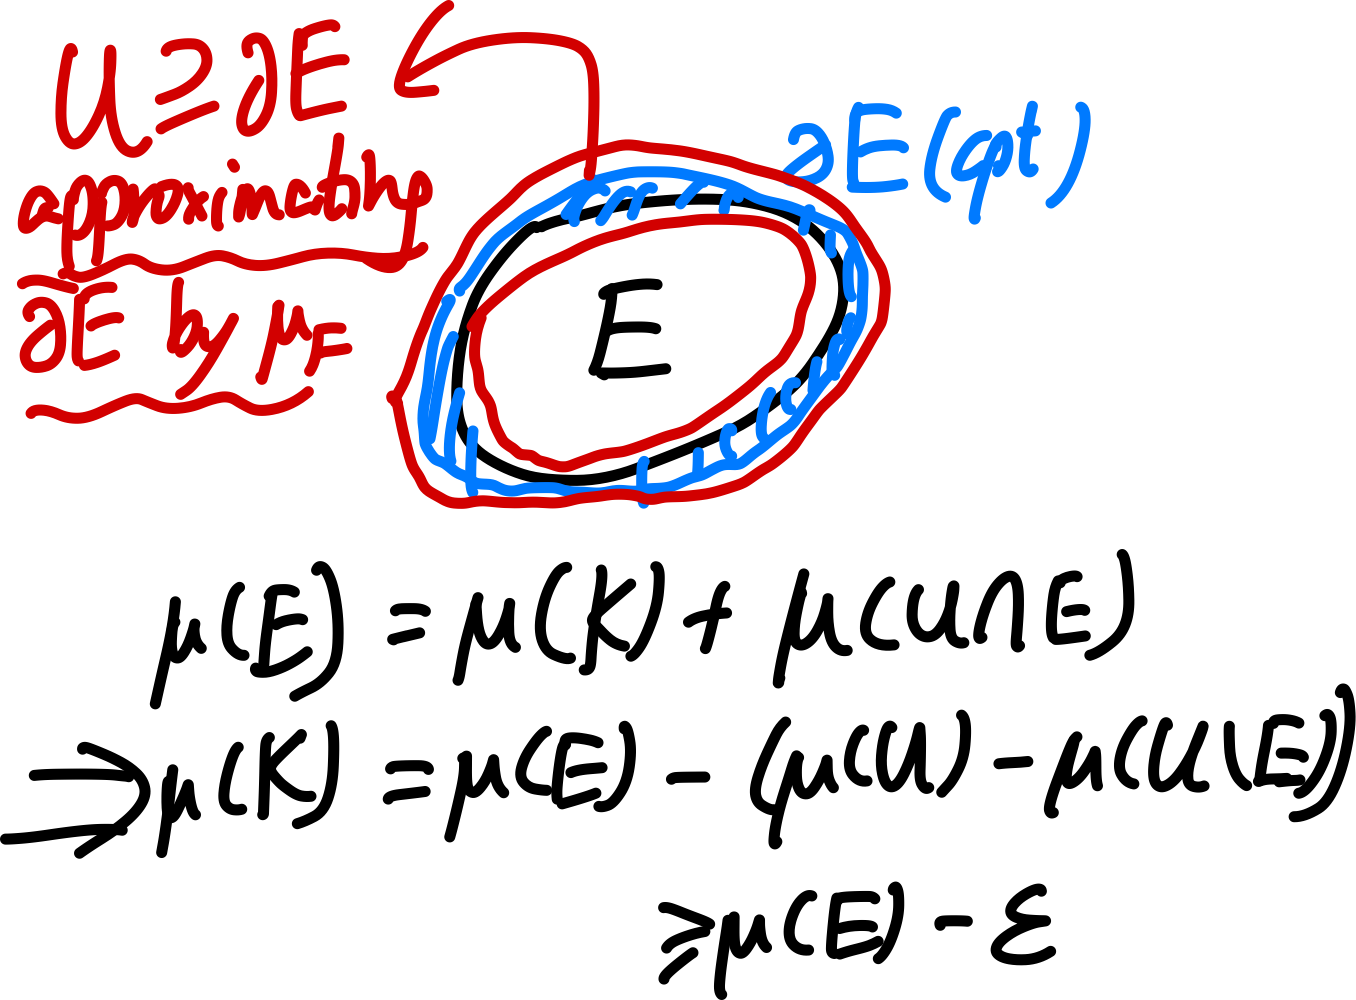 U ⊇ ∂E
approximating
∂E by μ_F
∂E (cpt)
E
μ(E) = μ(K) + μ(U∩E)
⇒ μ(K) = μ(E) - (μ(U) - μ(U\E))
≥ μ(E) - ε